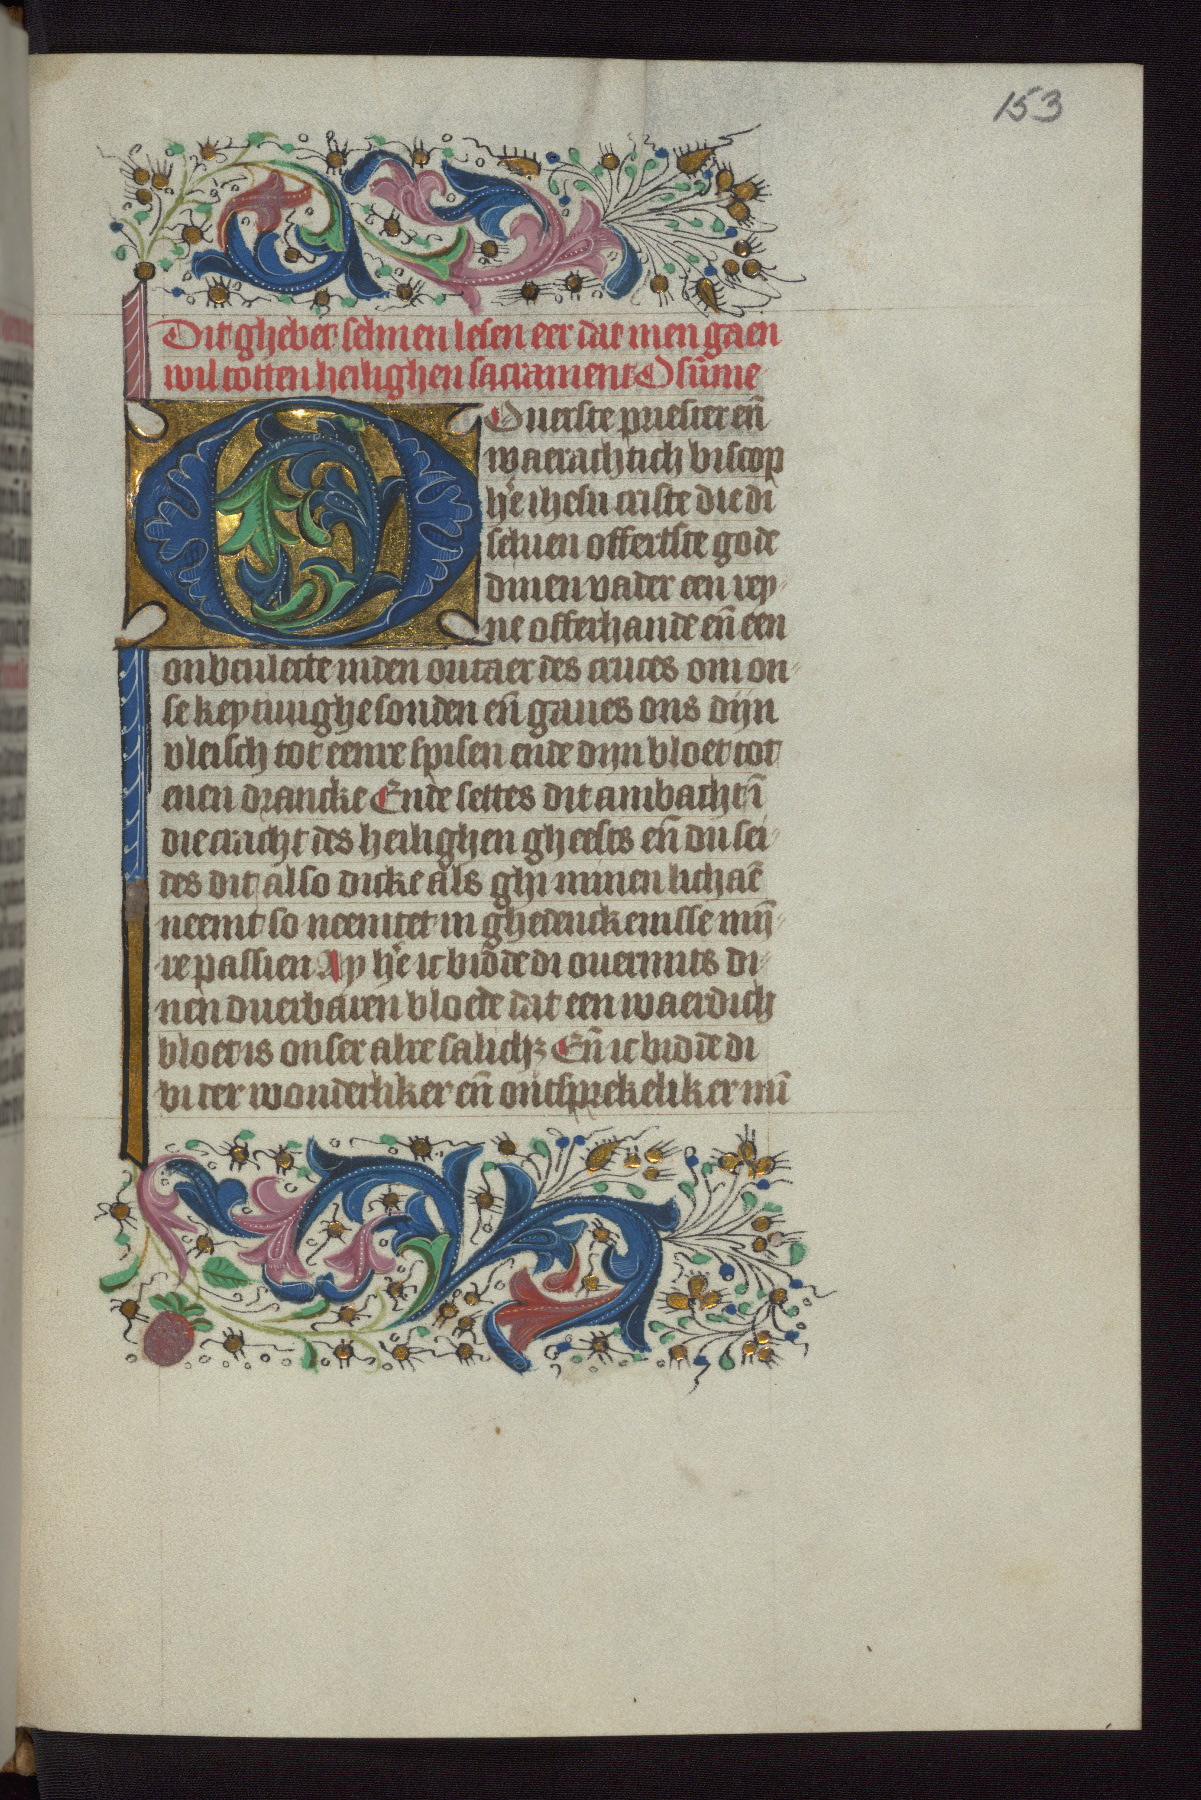 153
Dit ghebet selmen lesen eer dat men gaen
wil totten heilighen sacrament O sūme
Ouerste priester eñ
waerachtich biscop
h̄e ihesu criste die dī
seluen offertste gode
dinen vader een rey-
ne offerhande eñ een
onbeulecte inden outaer des cruces om on-
se keytiuighe sonden eñ gaues ons dijn
vleisch tot eenre spisen ende dijn bloet tot
enen drancke Ende settes dit ambacht ī
die cracht des heilighen gheests eñ du sei-
des dit also dicke als ghi minen lichaē
neemt so neemtet in ghedenckenisse mij̄-
re passien Ay h̄e ic bidde di ouermits di-
nen duerbaren bloede dat een waerdich
bloet is onser alre salichꝫ Eñ ic bidde di
bi der wonderliker eñ ontsprekeliker mī